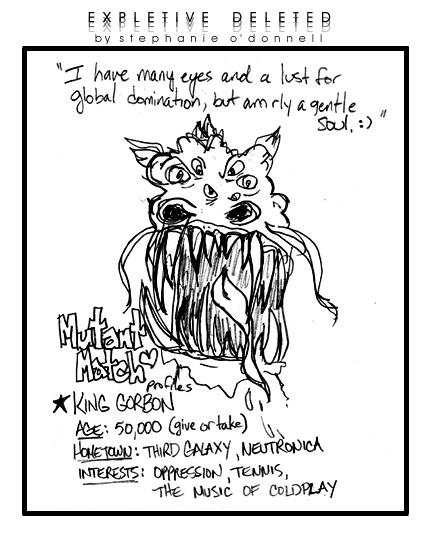 EXPLETIVE DELETED
by stephanie o'donnell
"I have many eyes and a lust for
global domination, but am rly a gentle
soul. :)"
Mutant
Match
profiles
★KING GORBON
AGE: 50,000 (give or take)
HOMETOWN: THIRD GALAXY, NEUTRONICA
INTERESTS: OPPRESSION, TENNIS,
THE MUSIC OF COLDPLAY